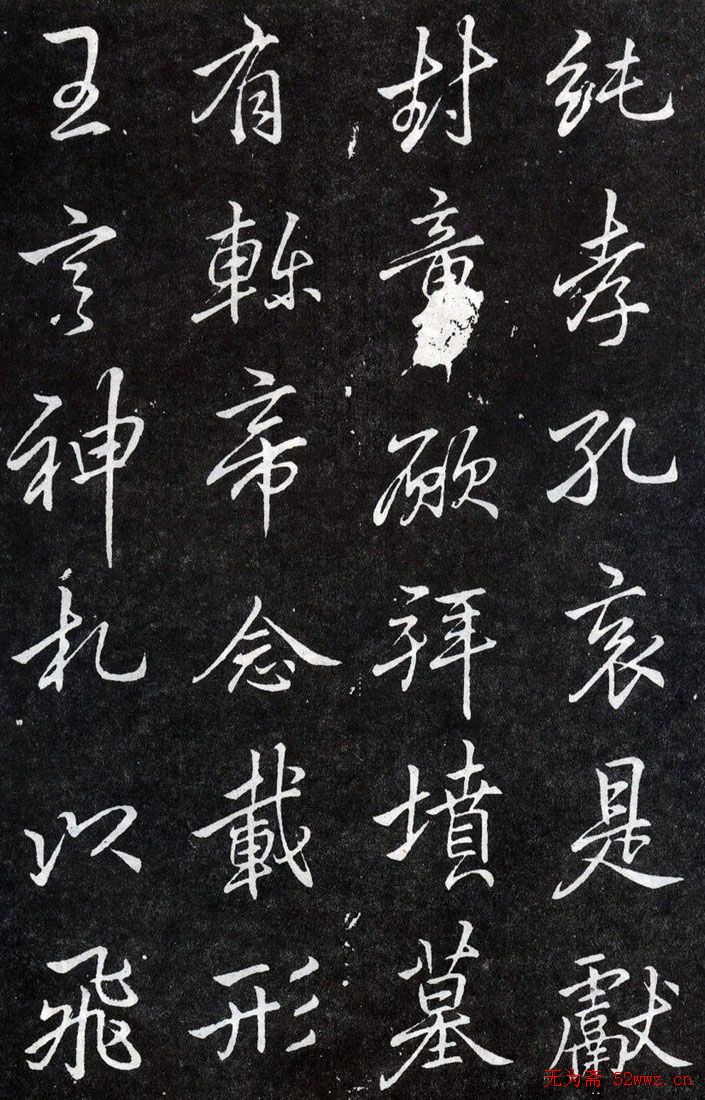 纯孝孔哀是獻
封章願拜墳墓
有軫帝念載形
王言神札以飛
无为斋 52wwz.cn